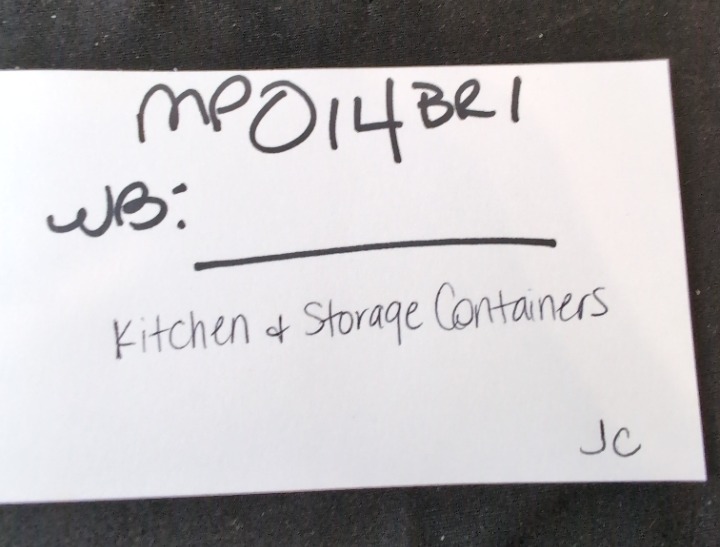 MP014BR1
WB:
Kitchen & Storage Containers
JC